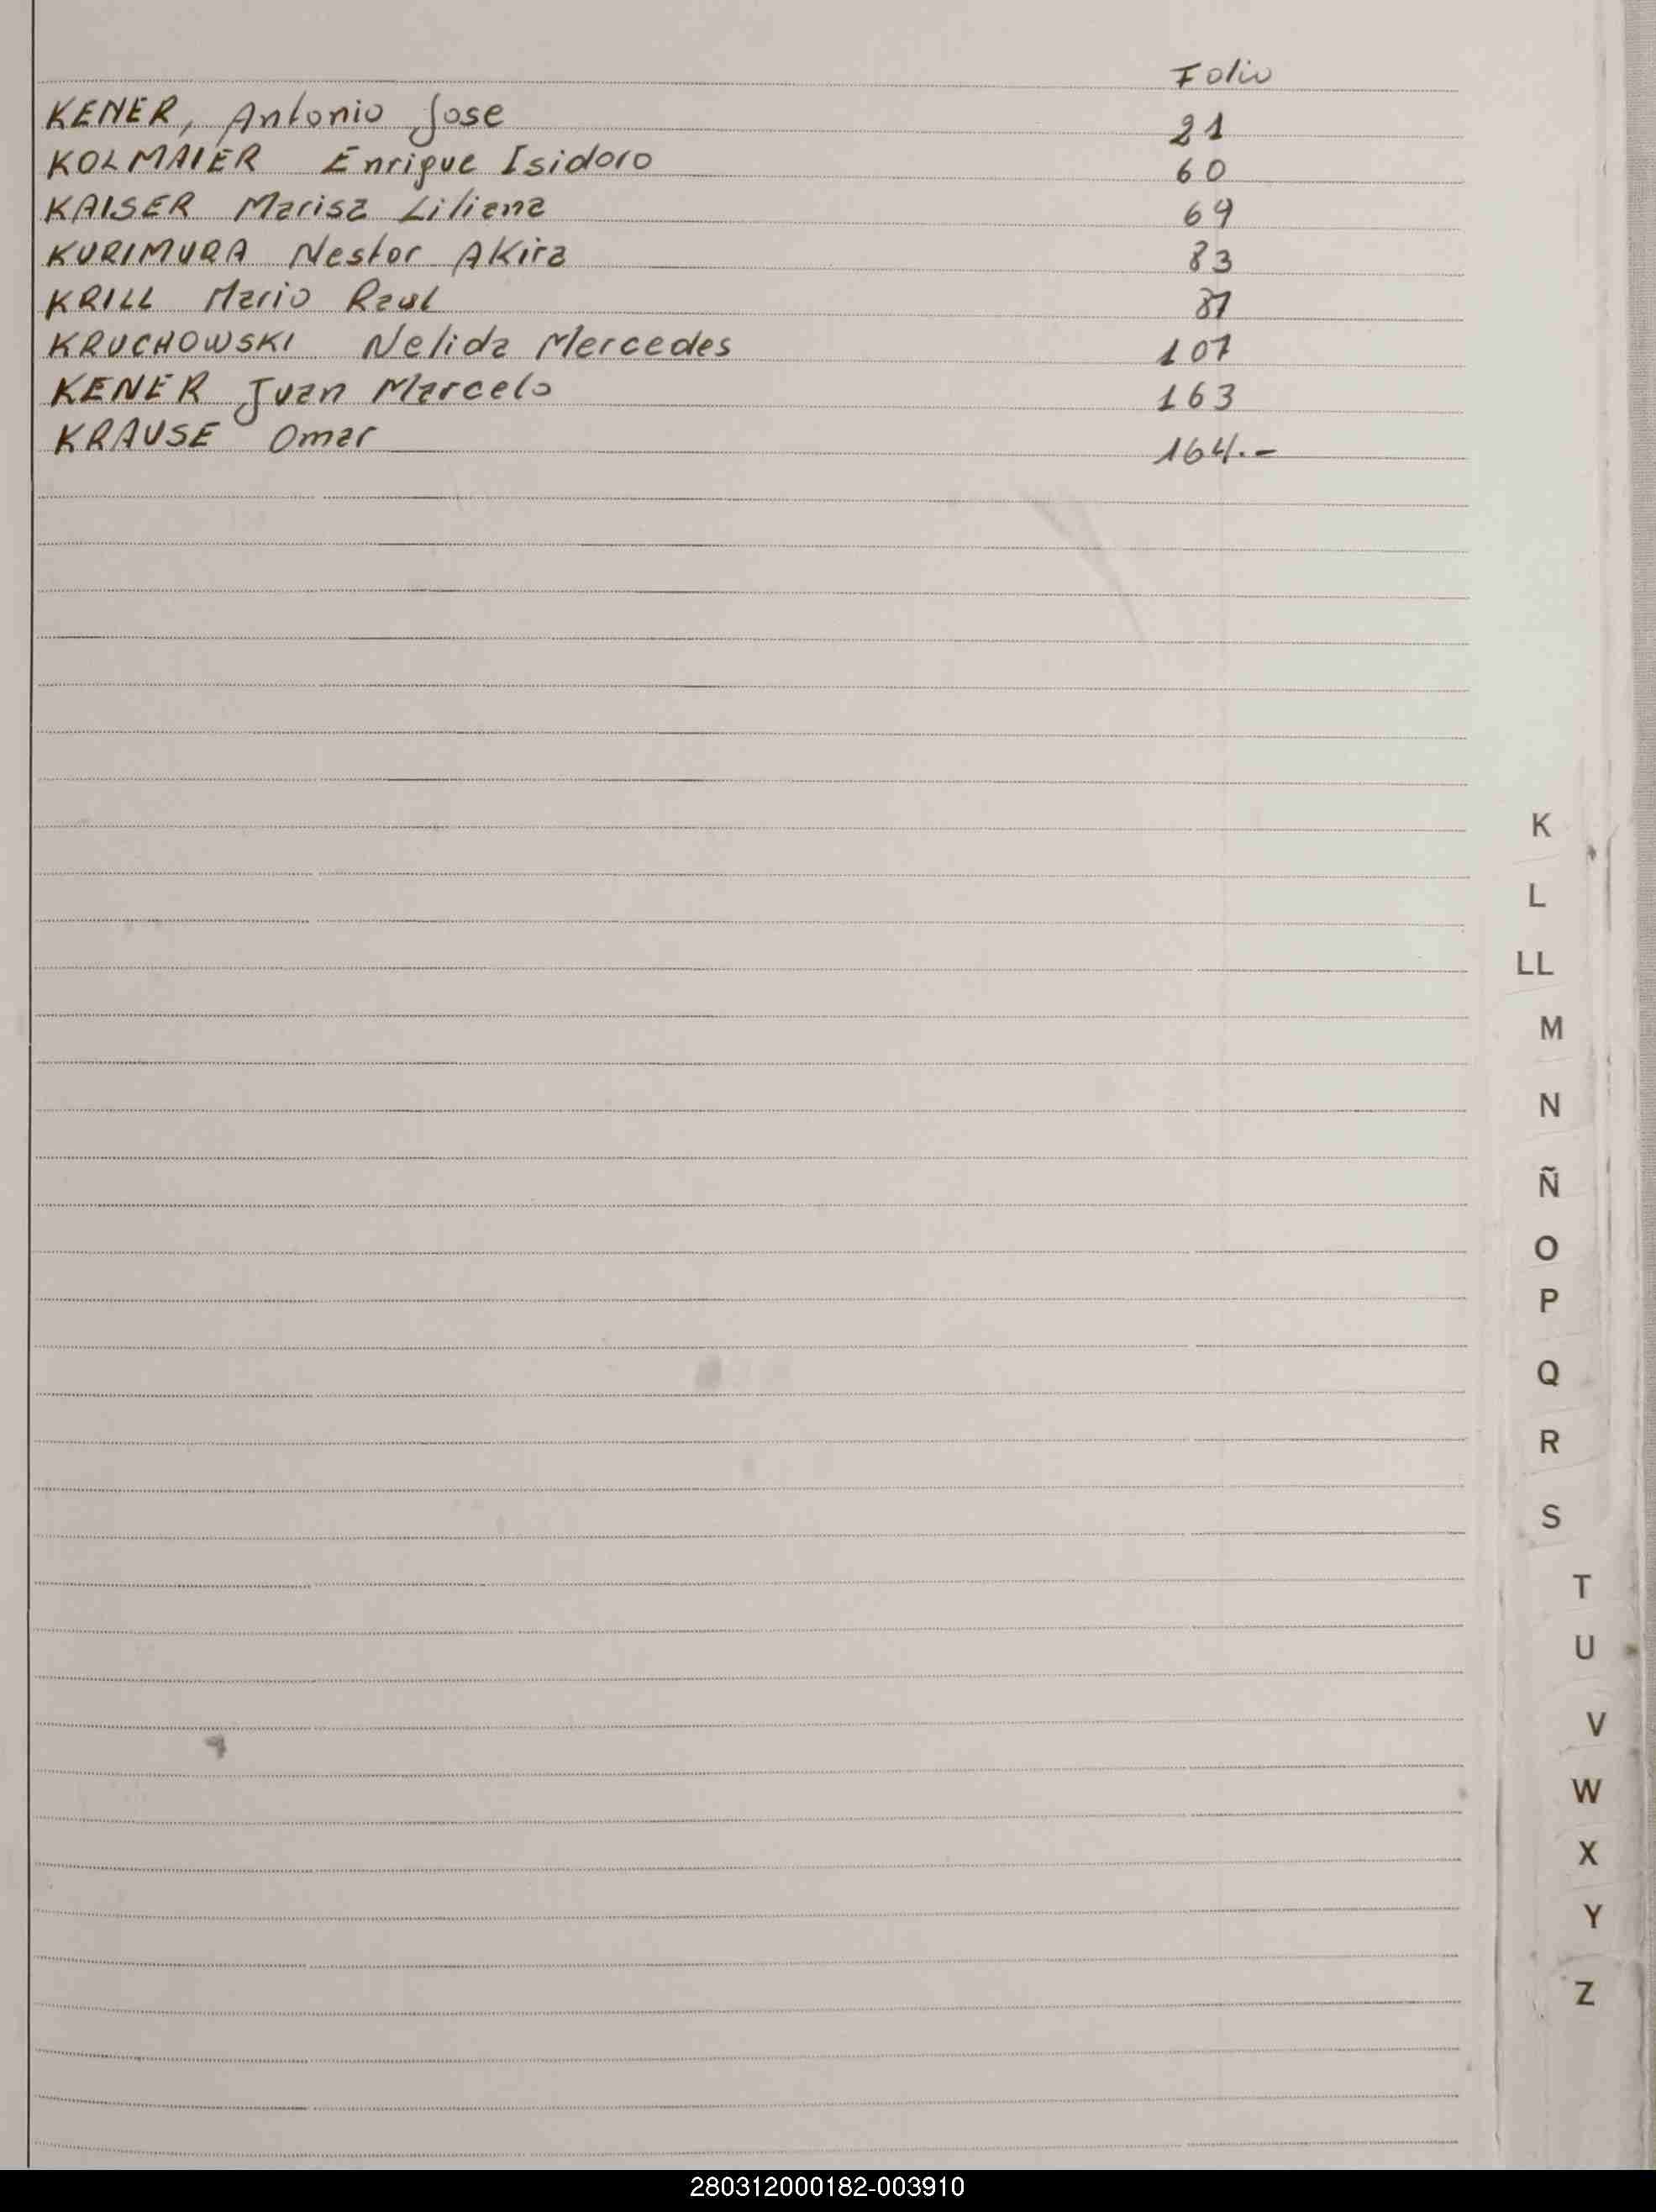 Folio
KENER, Antonio Jose 21
KOLMAIER Enrique Isidoro 60
KAISER Marisa Liliana 69
KURIMURA Nestor Akira 83
KRILL Mario Raul 87
KRUCHOWSKI Nelida Mercedes 107
KENER Juan Marcelo 163
KRAUSE Omar 164.-
K
L
LL
M
N
Ñ
O
P
Q
R
S
T
U
V
W
X
Y
Z
280312000182-003910